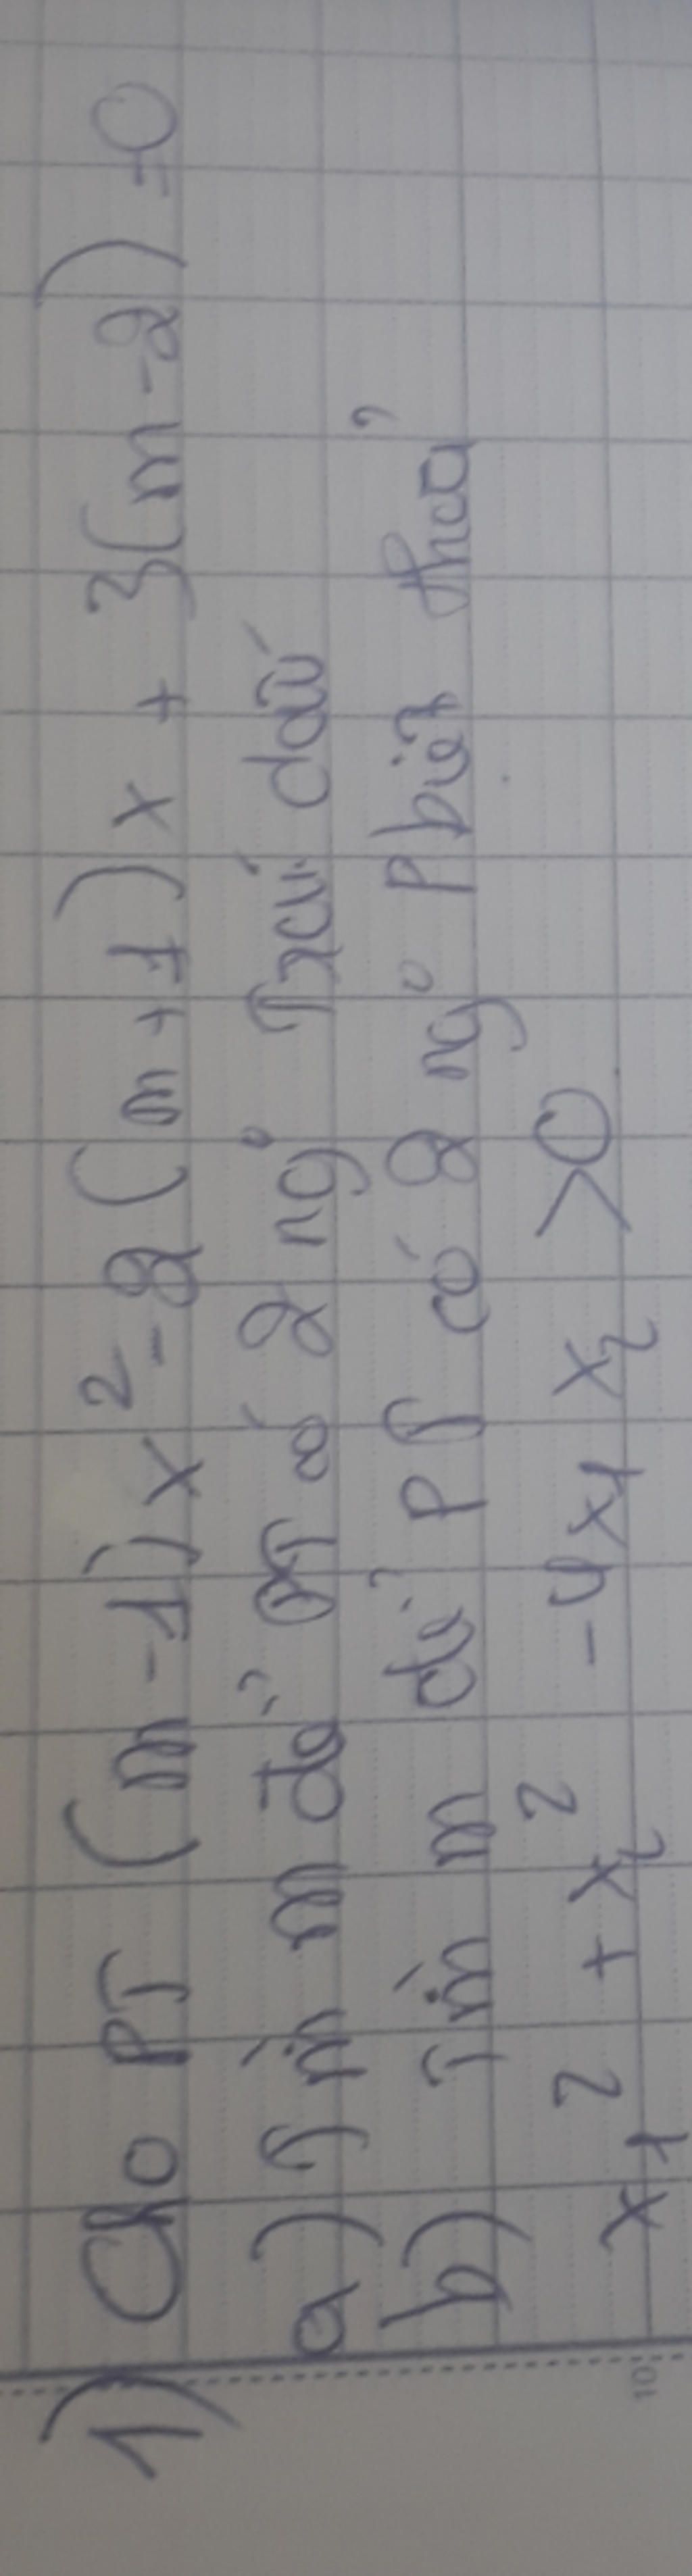 1) Cho PT (m-1)x² - 2(m+1)x + 3(m-2) = 0
a) Tìm m để PT có 2 ngº Trái dấu
b) Tìm m để PT có 2 ngº pbiệt thoả
x₁² + x₂² - 4x₁x₂ > 0
10